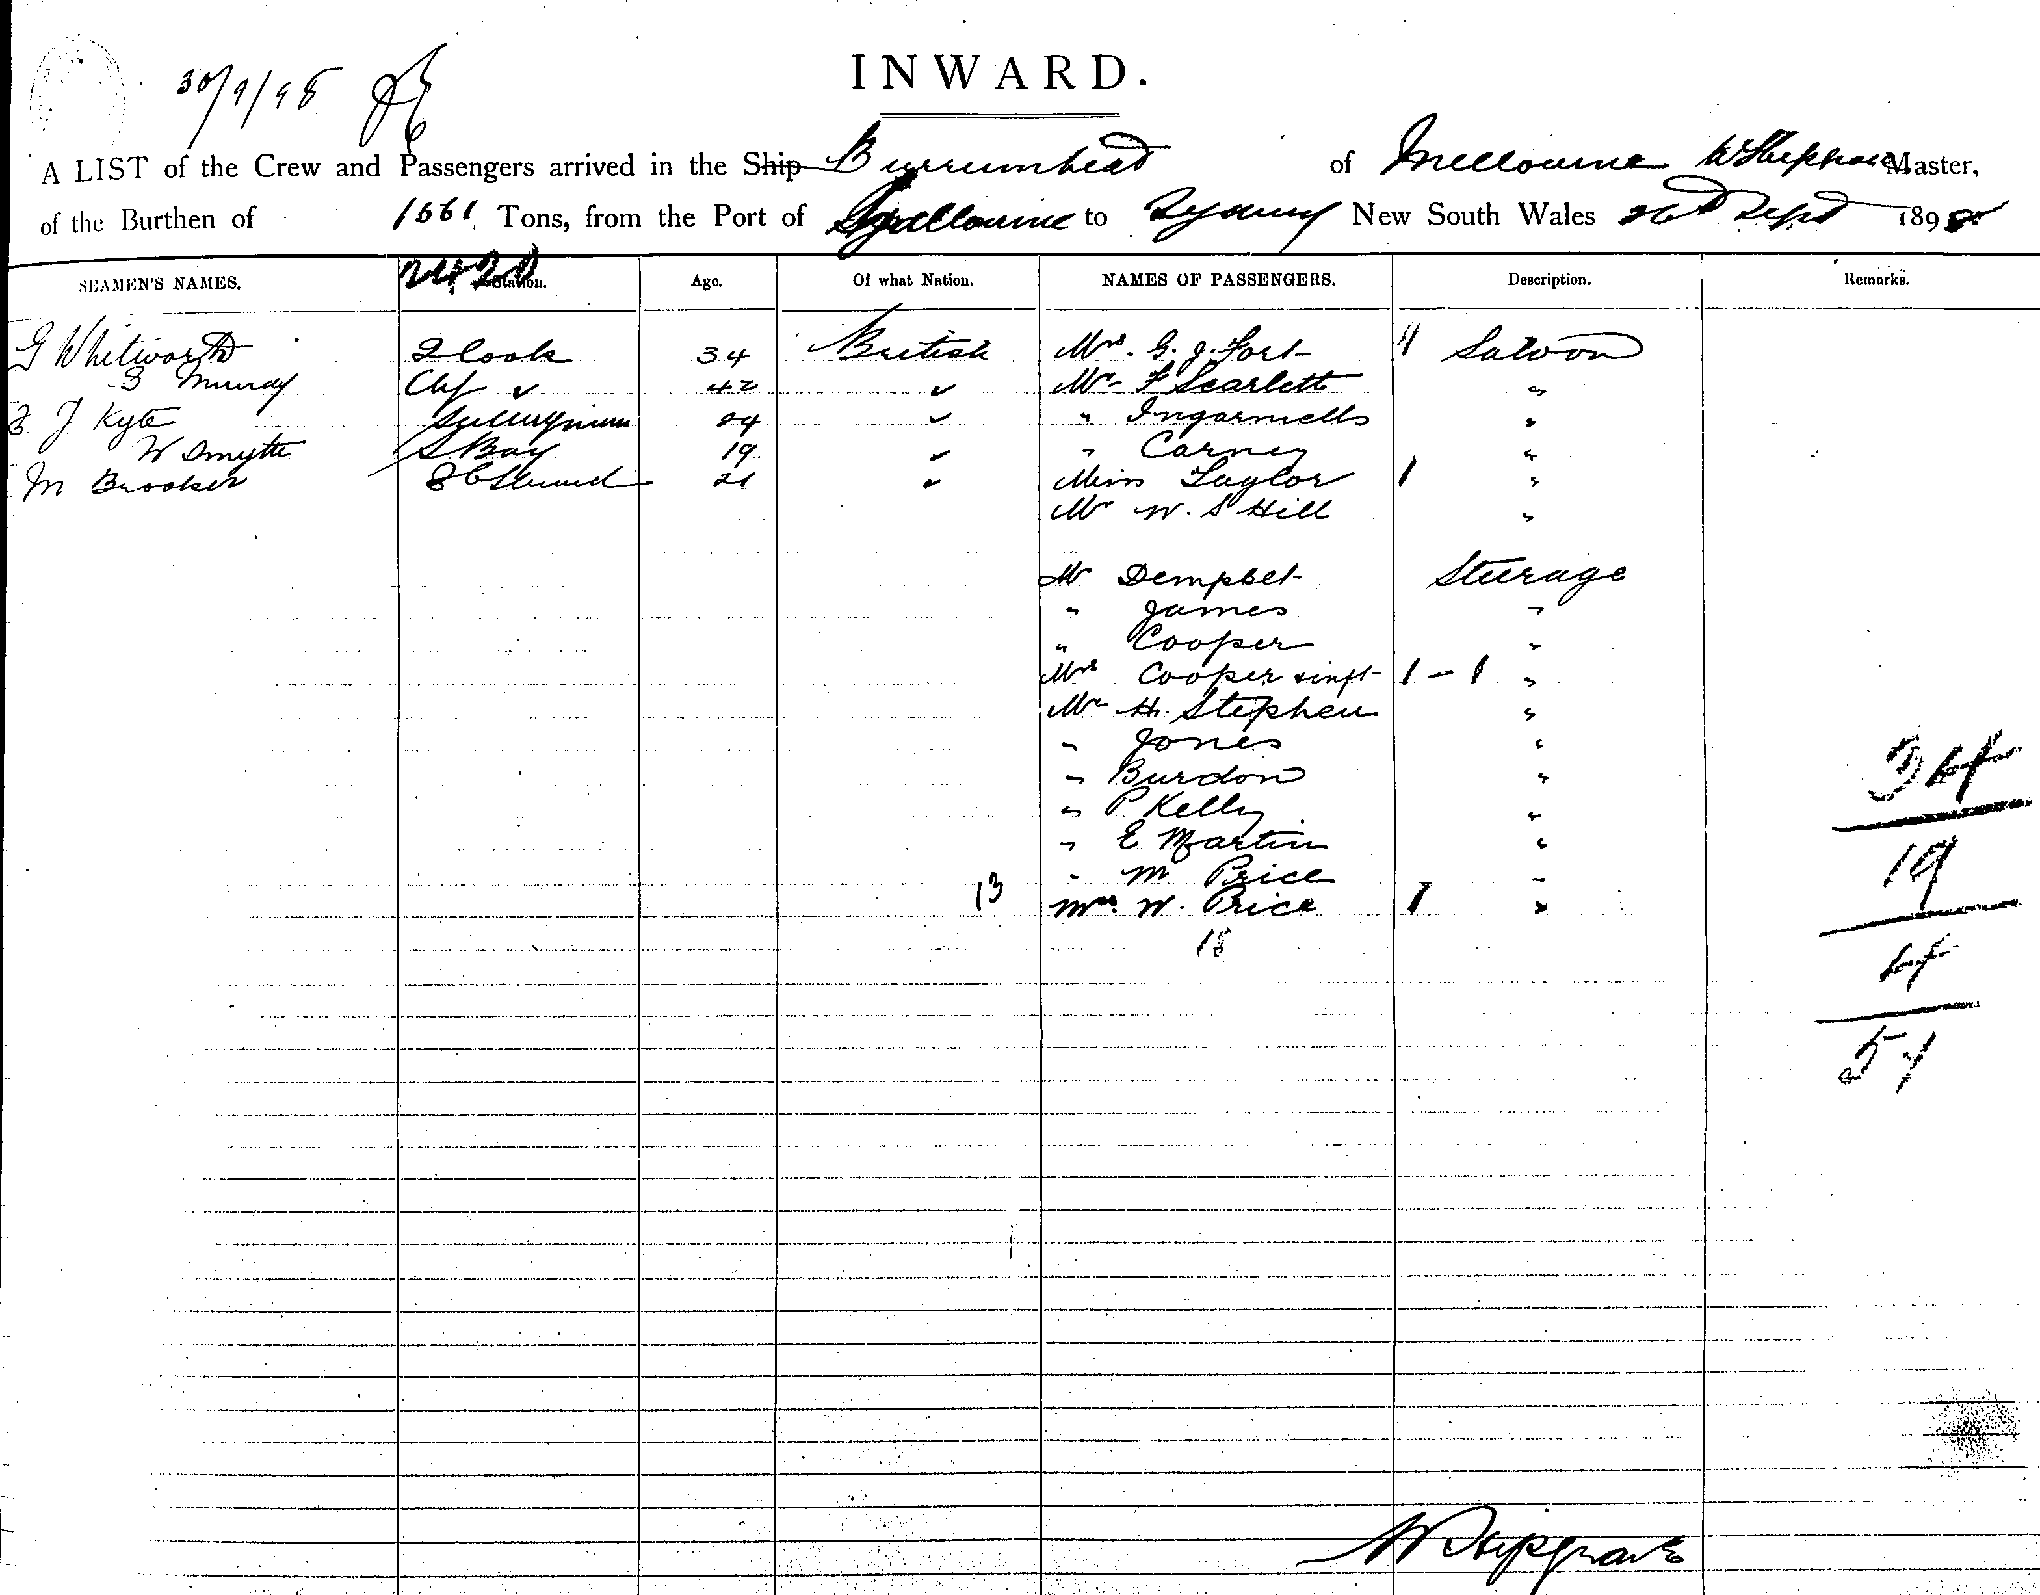 30/9/98
INWARD.
A LIST of the Crew and Passengers arrived in the Ship Burrumbeet of Melbourne W Shepherd Master,
of the Burthen of 1561 Tons, from the Port of Melbourne to Sydney New South Wales 26th Sept 1898
2420
SEAMEN'S NAMES. Station. Age. Of what Nation. NAMES OF PASSENGERS. Description. Remarks.
G Whitworth 2 Cook 34 British Mrs. G. J. Fort 4 Saloon
Murray Chf 42 Mr F Scarlett "
J Kyte 24 " Ingarmells "
W Smyth S Boy 19 " Carney "
M Brooker 21 Miss Taylor 1 "
Mr W. S Hill "
Mr Dempset Sturage
" James "
" Cooper "
Mrs Cooper & inft 1 - 1 "
Mr H. Stephen "
" Jones "
" Burdon "
" P. Kelly "
" E Martin "
" M Price "
13 Mrs. W. Price 1 "
18
34
19
54